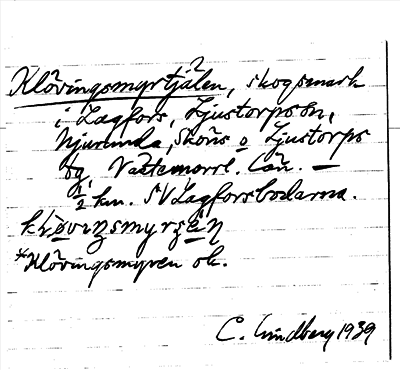 Klövingsmyrtjälen, skogsmark
i Lagfors, Ljustorps sn,
Njurunda, Sköns o Ljustorps
tg, Västernorrl. län. —
1/2 km. SV Lagforsbodarna.
*Klövingsmyren ok.
C. Lindberg 1939